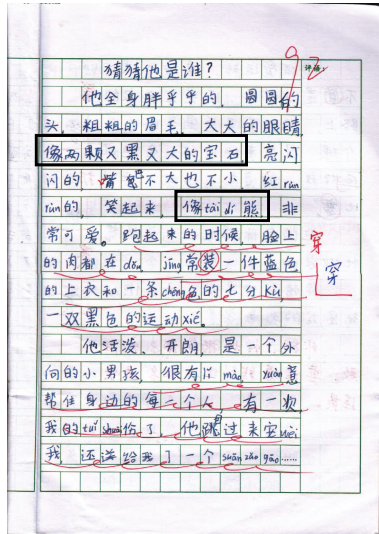 猜猜他是谁?
92
评语:
他全身胖乎乎的,圆圆的
头,粗粗的眉毛,大大的眼睛,
像两颗又黑又大的宝石,亮闪
闪的,嘴巴不大也不小,红rùn
rùn的,笑起来,像tài dí熊,非
常可爱。跑起来的时候,脸上
的肉都在dǒu,jīng常装一件蓝色
穿
的上衣和一条chéng色的七分kù,
穿
一双黑色的运动xié。
他活泼、开朗,是一个外
向的小男孩,很有lǐ mào,yuàn意
帮住身边的每一个人,有一次,
我的tuǐ shuāi伤了,他跳过来安wèi
我,还送给我了一个suān zǎo gāo……